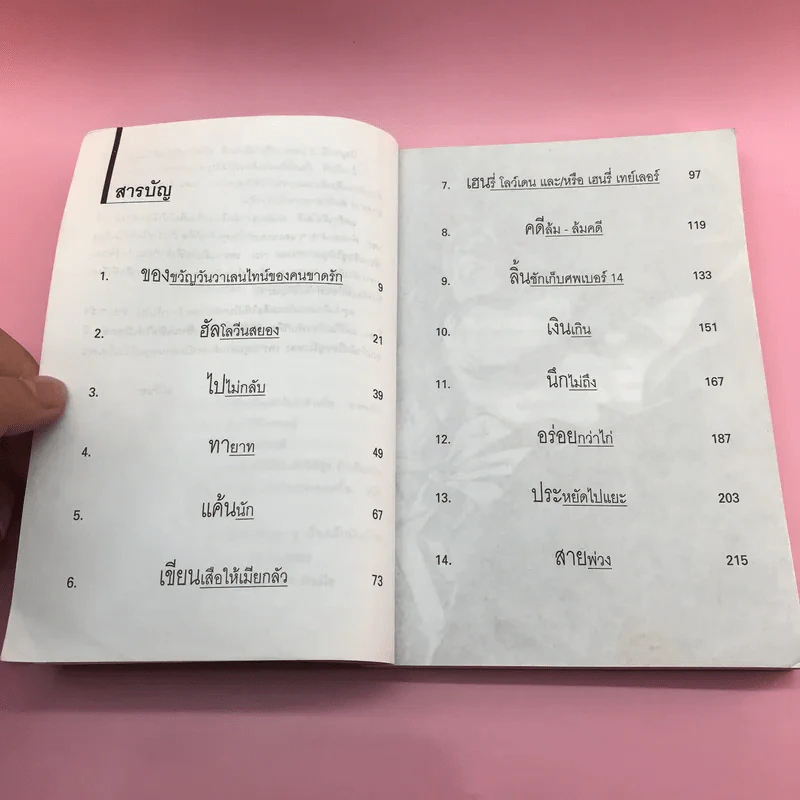 สารบัญ
1. ของขวัญวันวาเลนไทน์ของคนขาดรัก 9
2. ฮัลโลวีนสยอง 21
3. ไปไม่กลับ 39
4. ทายาท 49
5. แค้นนัก 67
6. เขียนเสือให้เมียกลัว 73
7. เฮนรี่ โลว์เดน และ/หรือ เฮนรี่ เทย์เลอร์ 97
8. คดีล้ม - ล้มคดี 119
9. ลิ้นชักเก็บศพเบอร์ 14 133
10. เงินเกิน 151
11. นึกไม่ถึง 167
12. อร่อยกว่าไก่ 187
13. ประหยัดไปแยะ 203
14. สายพ่วง 215